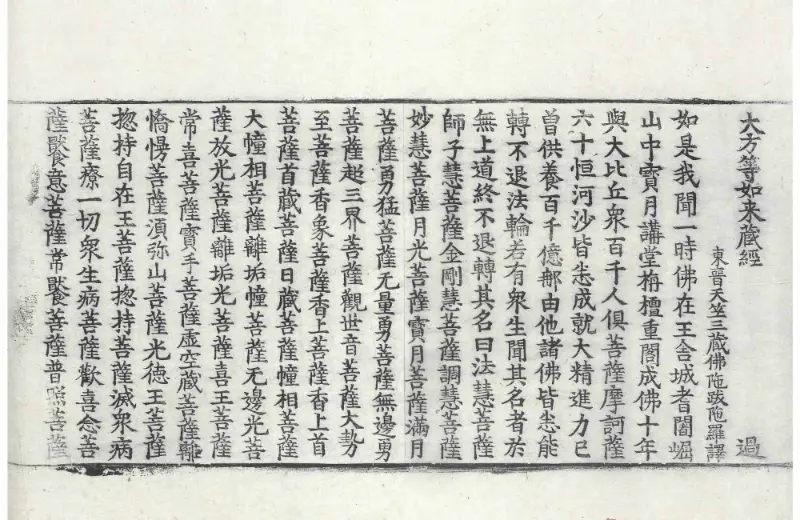 大方等如来藏經
過
東晉天笁三藏佛陁跋陁羅譯
如是我聞一時佛在王舍城耆闍崛
山中寳月講堂栴檀重閣成佛十年
與大比丘衆百千人俱菩薩摩訶薩
六十恒河沙皆悉成就大精進力已
曽供養百千億郍由他諸佛皆悉能
轉不退法輪若有衆生聞其名者於
無上道終不退轉其名曰法慧菩薩
師子慧菩薩金剛慧菩薩調慧菩薩
妙慧菩薩月光菩薩寳月菩薩滿月
菩薩勇猛菩薩无量勇菩薩無邊勇
菩薩超三界菩薩觀世音菩薩大勢
至菩薩香象菩薩香上菩薩香上首
菩薩首藏菩薩日藏菩薩幢相菩薩
大幢相菩薩離垢幢菩薩无邊光菩
薩放光菩薩離垢光菩薩喜王菩薩
常喜菩薩寳手菩薩虛空藏菩薩離
憍慢菩薩湏弥山菩薩光徳王菩薩
揔持自在王菩薩揔持菩薩滅衆病
菩薩療一切衆生病菩薩歡喜念菩
薩饜意菩薩常饜菩薩普照菩薩